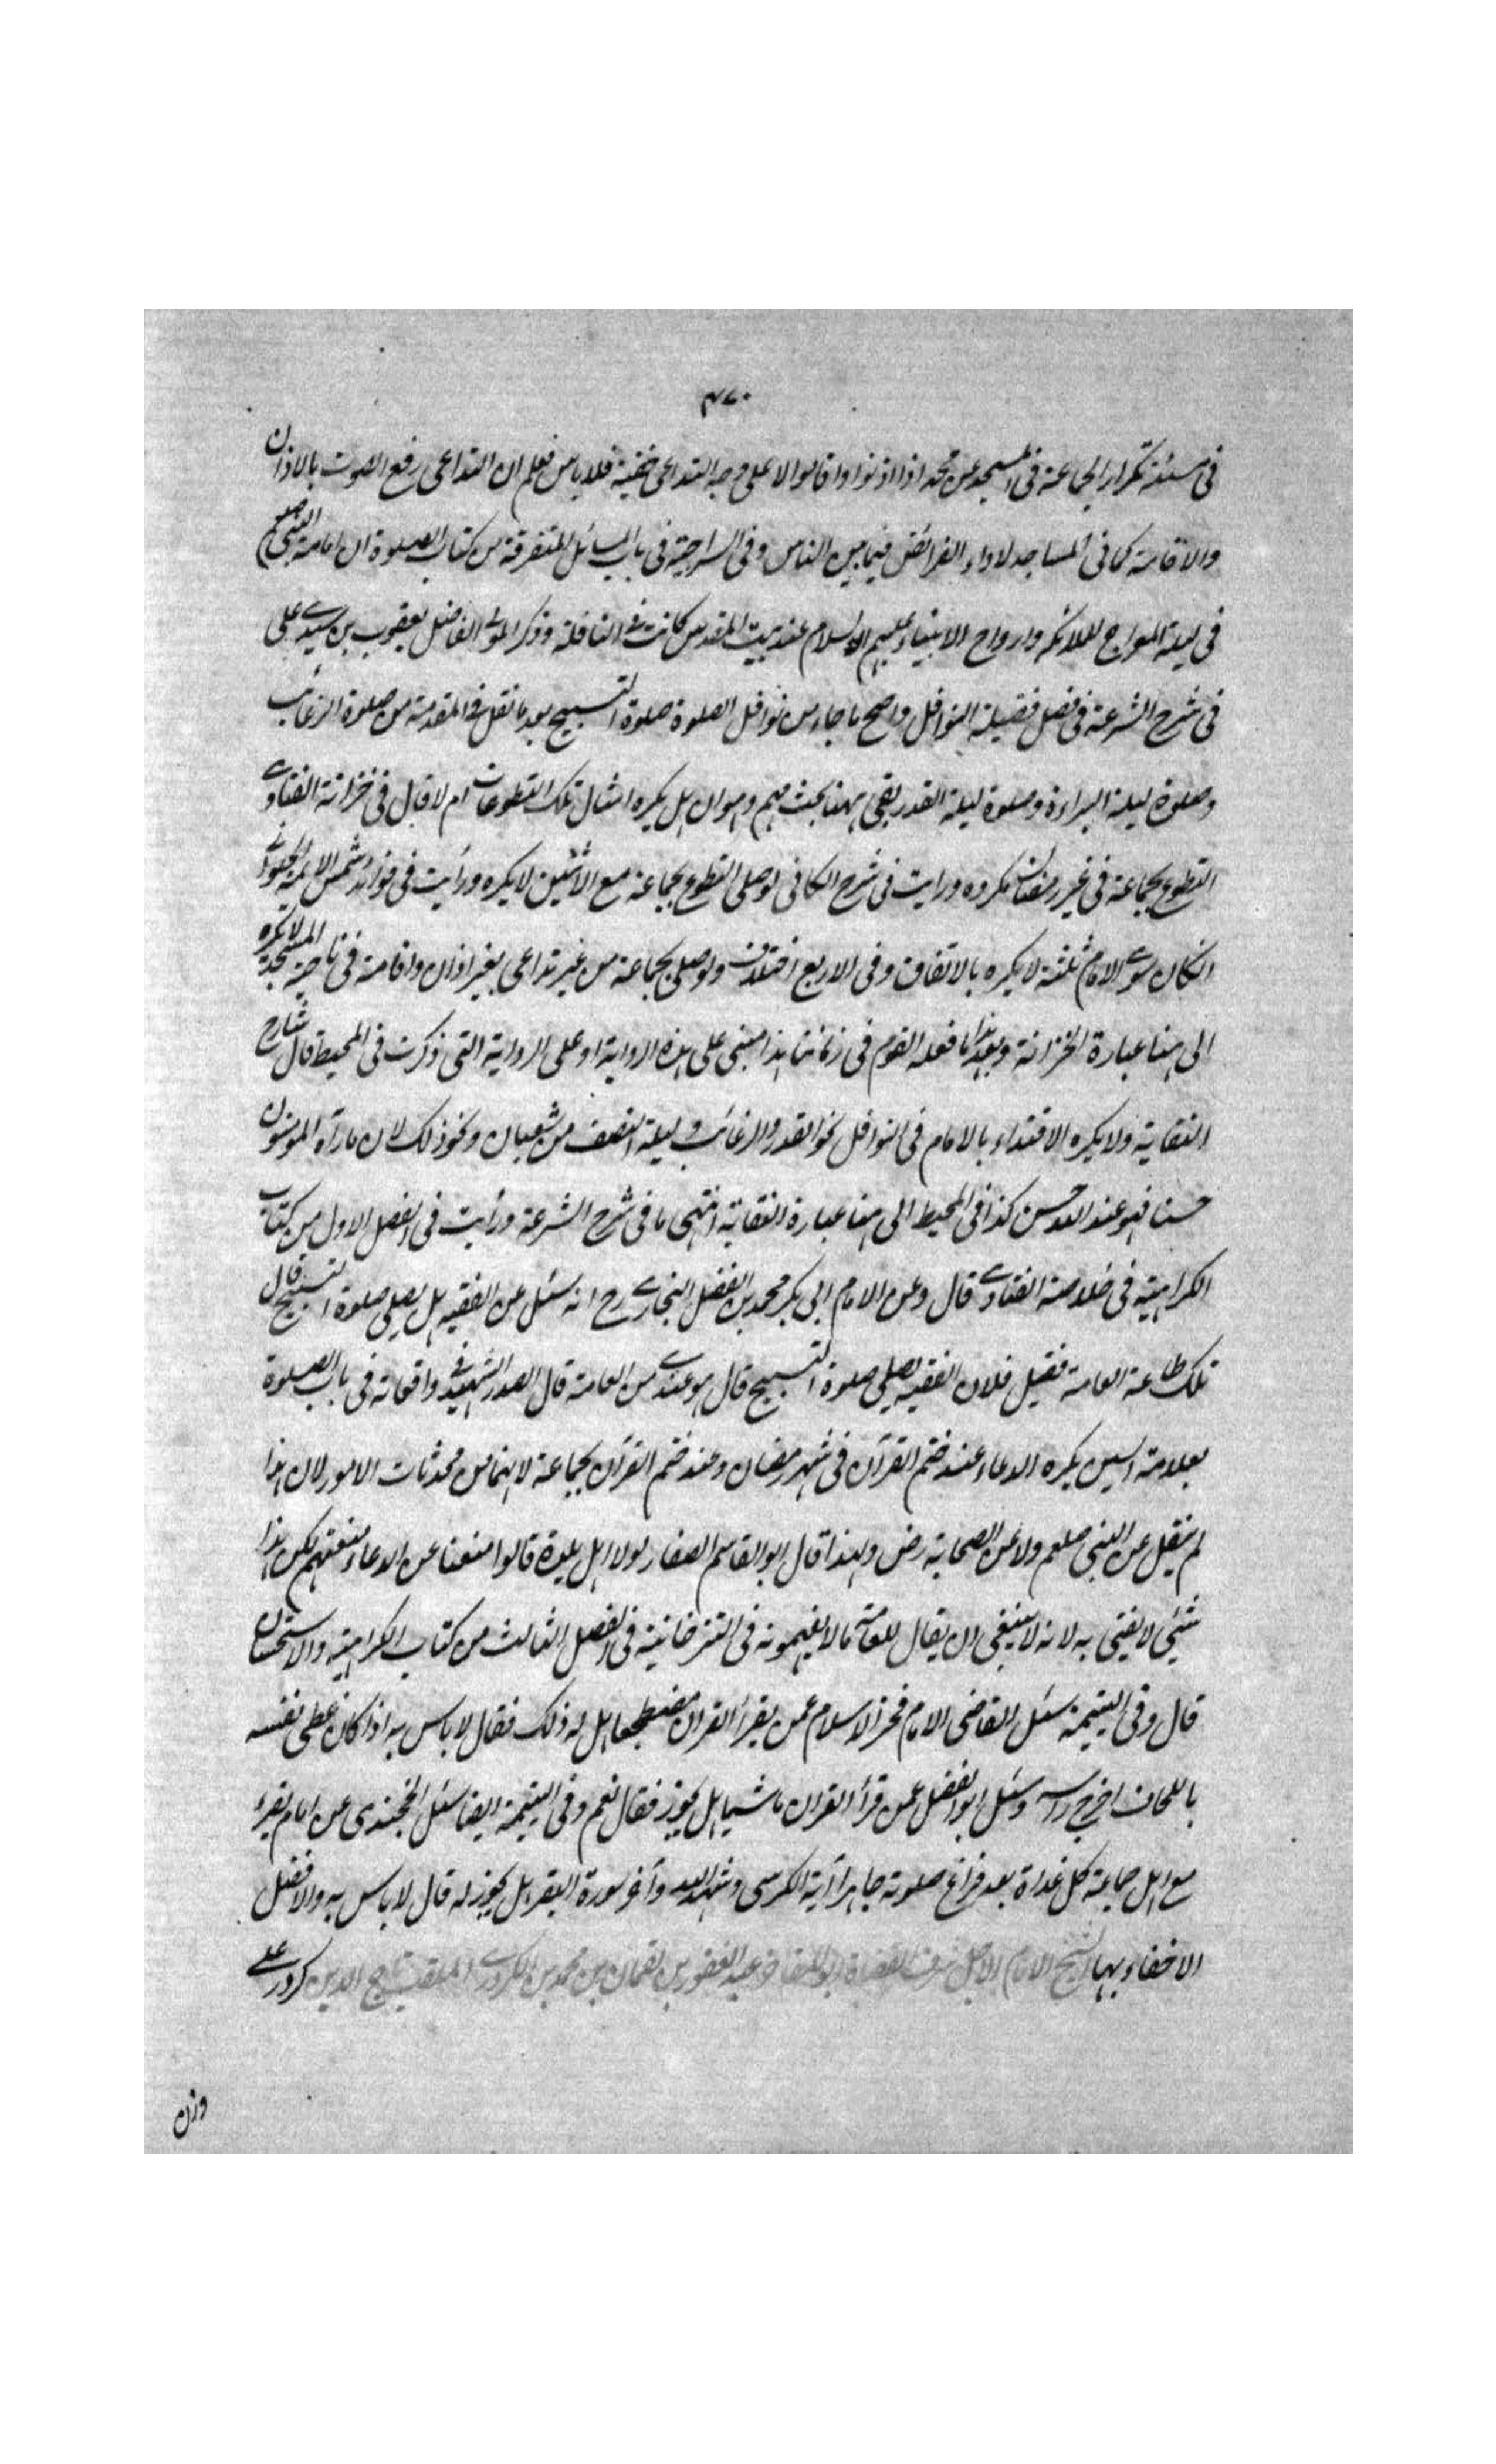 ٤٧٠
فى مسئلة تكرار الجماعة فى المسجد عن محمد اذا اذنوا واقاموا لا على وجه التداعى خفية فلا باس فعلم ان التداعى رفع الصوت بالاذان
والاقامة كما فى المساجد لاداء الفرائض فيما بين الناس وفى السراجية فى باب المسائل المتفرقة من كتاب الصلوة ان امامة النبى صلعم
فى ليلة المعراج للملائكه وارواح الانبياء عليهم السلام عند بيت المقدس كانت فى النافلة وذكر المولى الفاضل يعقوب بن سيدى على
فى شرح الشرعة فى فصل فضيلة النوافل واصح ما جاء من نوافل الصلوة صلوة التسبيح بعد ما نقل فى المقدمة من صلوة الرغائب
وصلوة ليلة البراءة وصلوة ليلة القدر بقى ههنا بحث مهم وهو ان هل يكره امثال تلك التطوعات ام لا قال فى خزانة الفتاوى
التطوع بجماعة فى غير رمضان مكروه ورايت فى شرح الكافى لو صلى التطوع بجماعة مع الاثنين لا يكره ورأيت فى فوائد شمس الائمة الحلوائى
ان كان سوى الامام ثلثة لا يكره بالاتفاق وفى الاربع اختلاف ولو صلى بجماعة من غير تداعى بغير اذان واقامة فى ناحية المسجد لا يكره
الى هنا عبارة الخزانة وبعد هذا ما فعله القوم فى زماننا هذا مبنى على هذه الرواية او على الرواية التى ذكرت فى المحيط قال شارح
النقاية ولا يكره الاقتداء بالامام فى النوافل نحو القدر والرغائب و ليلة النصف من شعبان ونحو ذلك لان ما رآه المؤمنون
حسنا فهو عند الله حسن كذا فى المحيط الى هنا عبارة النقاية انتهى ما فى شرح الشرعة ورأيت فى الفصل الاول من كتاب
الكراهية فى خلاصة الفتاوى قال وعن الامام ابى بكر محمد بن الفضل البخارى رح انه سئل عن الفقيه هل يصلى صلوة التسبيح قال
تلك طاعة العامة فقيل فلان الفقيه يصلى صلوة التسبيح قال هو عندى من العامة قال الصدر الشهيد فى واقعاته فى باب الصلوة
بعلامة السين يكره الدعاء عند ختم القرآن فى شهر رمضان وعند ختم القرآن بجماعة لانها من محدثات الامور لان هذا
لم ينقل عن النبى صلعم ولا عن الصحابة رض ولهذا قال ابو القاسم الصفار لولا اهل بلدة قالوا منعنا عن الدعاء لمنعتهم لكن هذا
شئى لا يفتى به لانه لا ينبغى ان يقال للعامة ما لا يفهمونه فى التترخانية فى الفصل الثالث من كتاب الكراهية والاستحسان
قال وفى اليتيمة سئل القاضى الامام فخر الاسلام عمن يقرأ القران مضطجعا هل له ذلك فقال لا باس به اذا كان غطى نفسه
باللحاف اخرج راسه وسئل ابو الفضل عمن قرأ القران ماشيا هل يجوز فقال نعم وفى اليتيمة ايضا سئل الخجندى عن امام يقرء
مع اهل جماعة كل غداة بعد فراغ صلوته جاهرا آية الكرسى وشهد الله وآخر سورة البقر هل يجوز له قال لا باس به والافضل
الاخفاء بها الشيخ الامام الاجل شرف القضاة ابو المفاخر عبد الغفور بن لقمان بن محمد بن الكردرى الملقب بتاج الدين كردر على
وزن